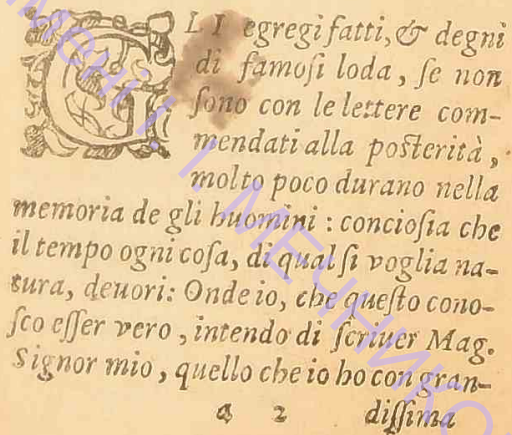 GLI egregi fatti, & degni
di famosi loda, se non
sono con le lettere com-
mendati alla posterità,
molto poco durano nella
memoria de gli huomini : conciosia che
il tempo ogni cosa, di qual si voglia na-
tura, deuori: Onde io, che questo cono-
sco esser vero, intendo di scriuer Mag.
Signor mio, quello che io ho con gran-
a 2 dissima